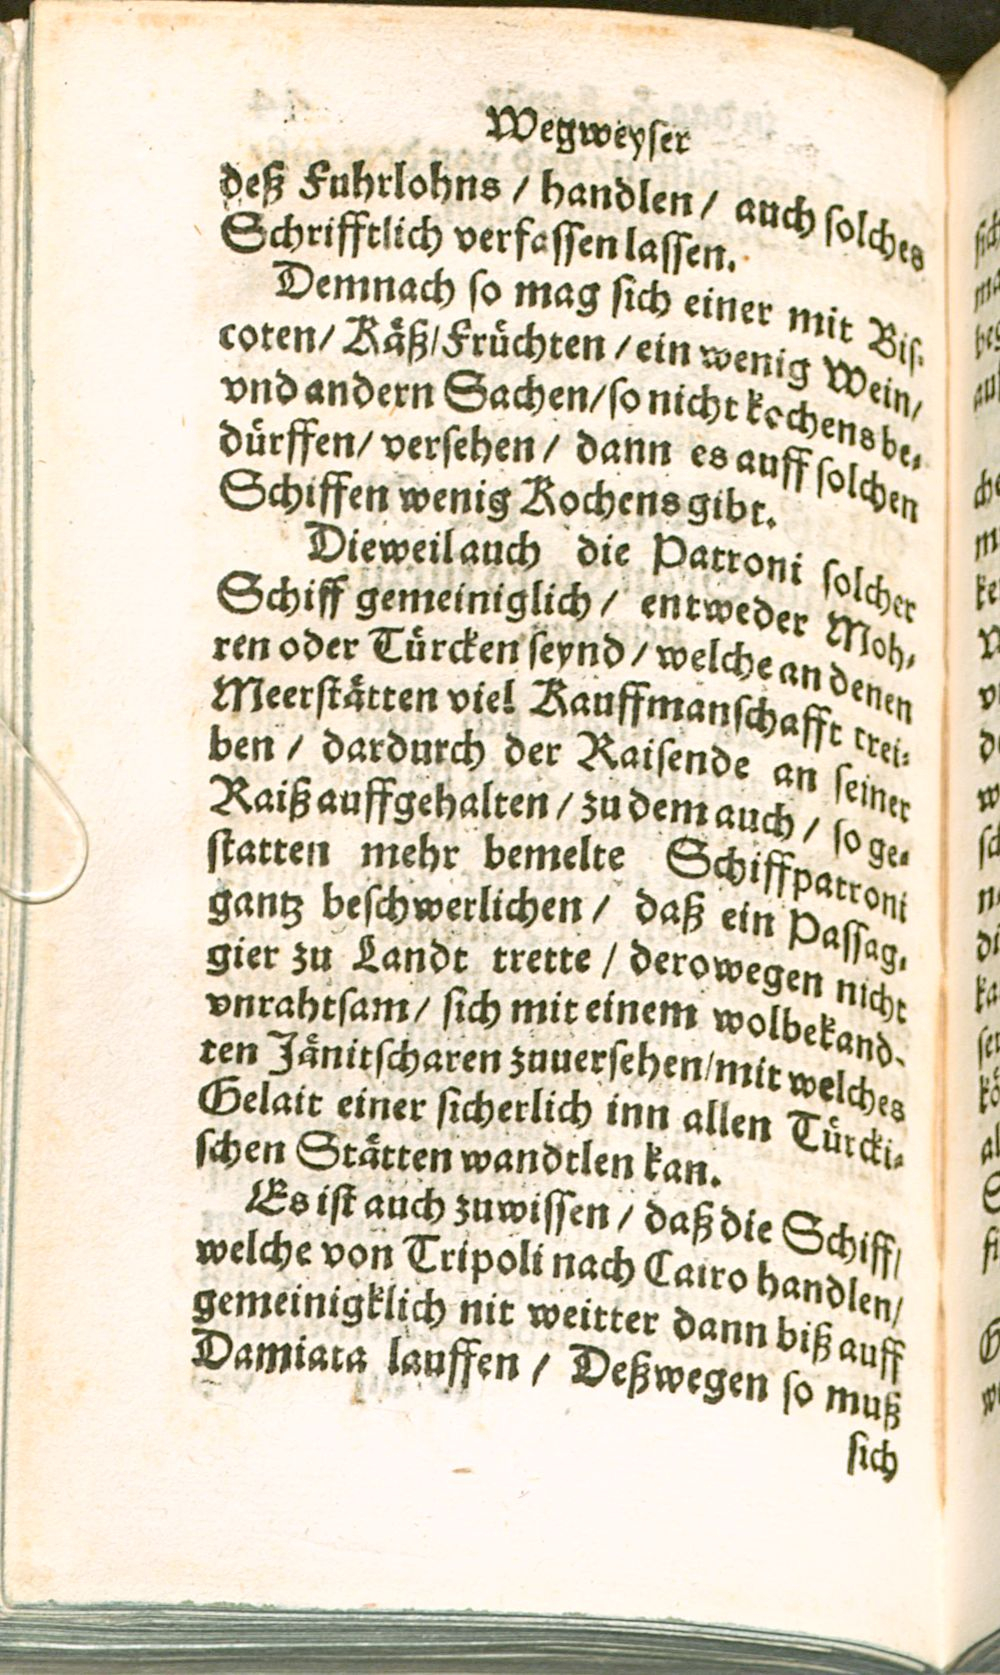 Wegweyser
deß Fuhrlohns / handlen / auch solches
Schrifftlich verfassen lassen.
Demnach so mag sich einer mit Bis-
coten / Käß / Früchten / ein wenig Wein /
vnd andern Sachen / so nicht kochens be-
dürffen / versehen / dann es auff solchen
Schiffen wenig Kochens gibt.
Dieweil auch die Patroni solcher
Schiff gemeiniglich / entweder Moh-
ren oder Türcken seynd / welche an denen
Meerstätten viel Kauffmanschafft trei-
ben / dardurch der Raisende an seiner
Raiß auffgehalten / zu dem auch / so ge-
statten mehr bemelte Schiffpatroni
gantz beschwerlichen / daß ein Passag-
gier zu Landt trette / derowegen nicht
vnrahtsam / sich mit einem wolbekand-
ten Jänitscharen zuuersehen / mit welches
Gelait einer sicherlich inn allen Türcki-
schen Stätten wandtlen kan.
Es ist auch zuwissen / daß die Schiff /
welche von Tripoli nach Cairo handlen /
gemeinigklich nit weitter dann biß auff
Damiata lauffen / Deßwegen so muß
sich